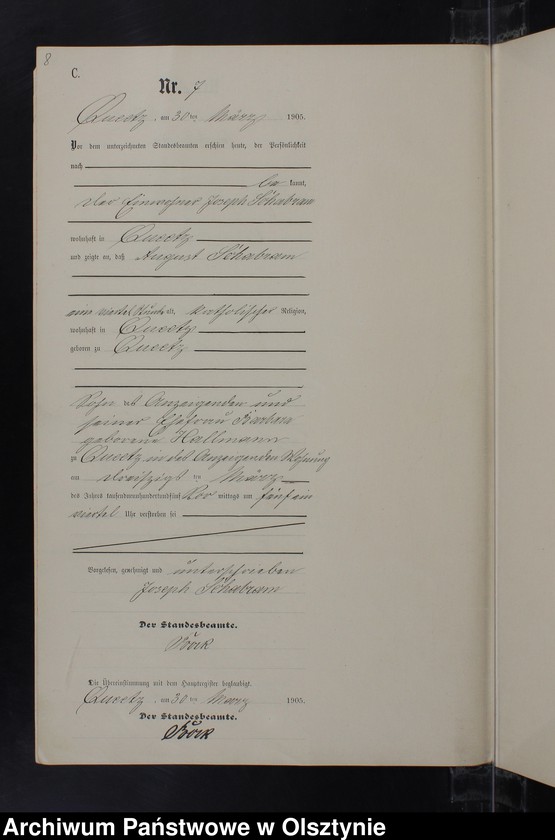 8
C.
Nr. 7
Queetz, am 30ten März 1905.
Vor dem unterzeichneten Standesbeamten erschien heute, der Persönlichkeit
nach
be kannt,
der Einwohner Joseph Schabram
wohnhaft in Queetz
und zeigte an, daß August Schabram
eine viertel Stunde alt, katholischer Religion,
wohnhaft in Queetz
geboren zu Queetz
Sohn des Anzeigenden und
seiner Ehefrau Barbara
geborene Hallmann
zu Queetz in des Anzeigenden Wohnung
am dreißigsten März
des Jahres tausendneunhundertundfünf Vor mittags um fünf ein
viertel Uhr verstorben sei
Vorgelesen, genehmigt und unterschrieben
Joseph Schabram
Der Standesbeamte.
Die Übereinstimmung mit dem Hauptregister beglaubigt.
Queetz, am 30ten März 1905.
Der Standesbeamte.
Archiwum Państwowe w Olsztynie